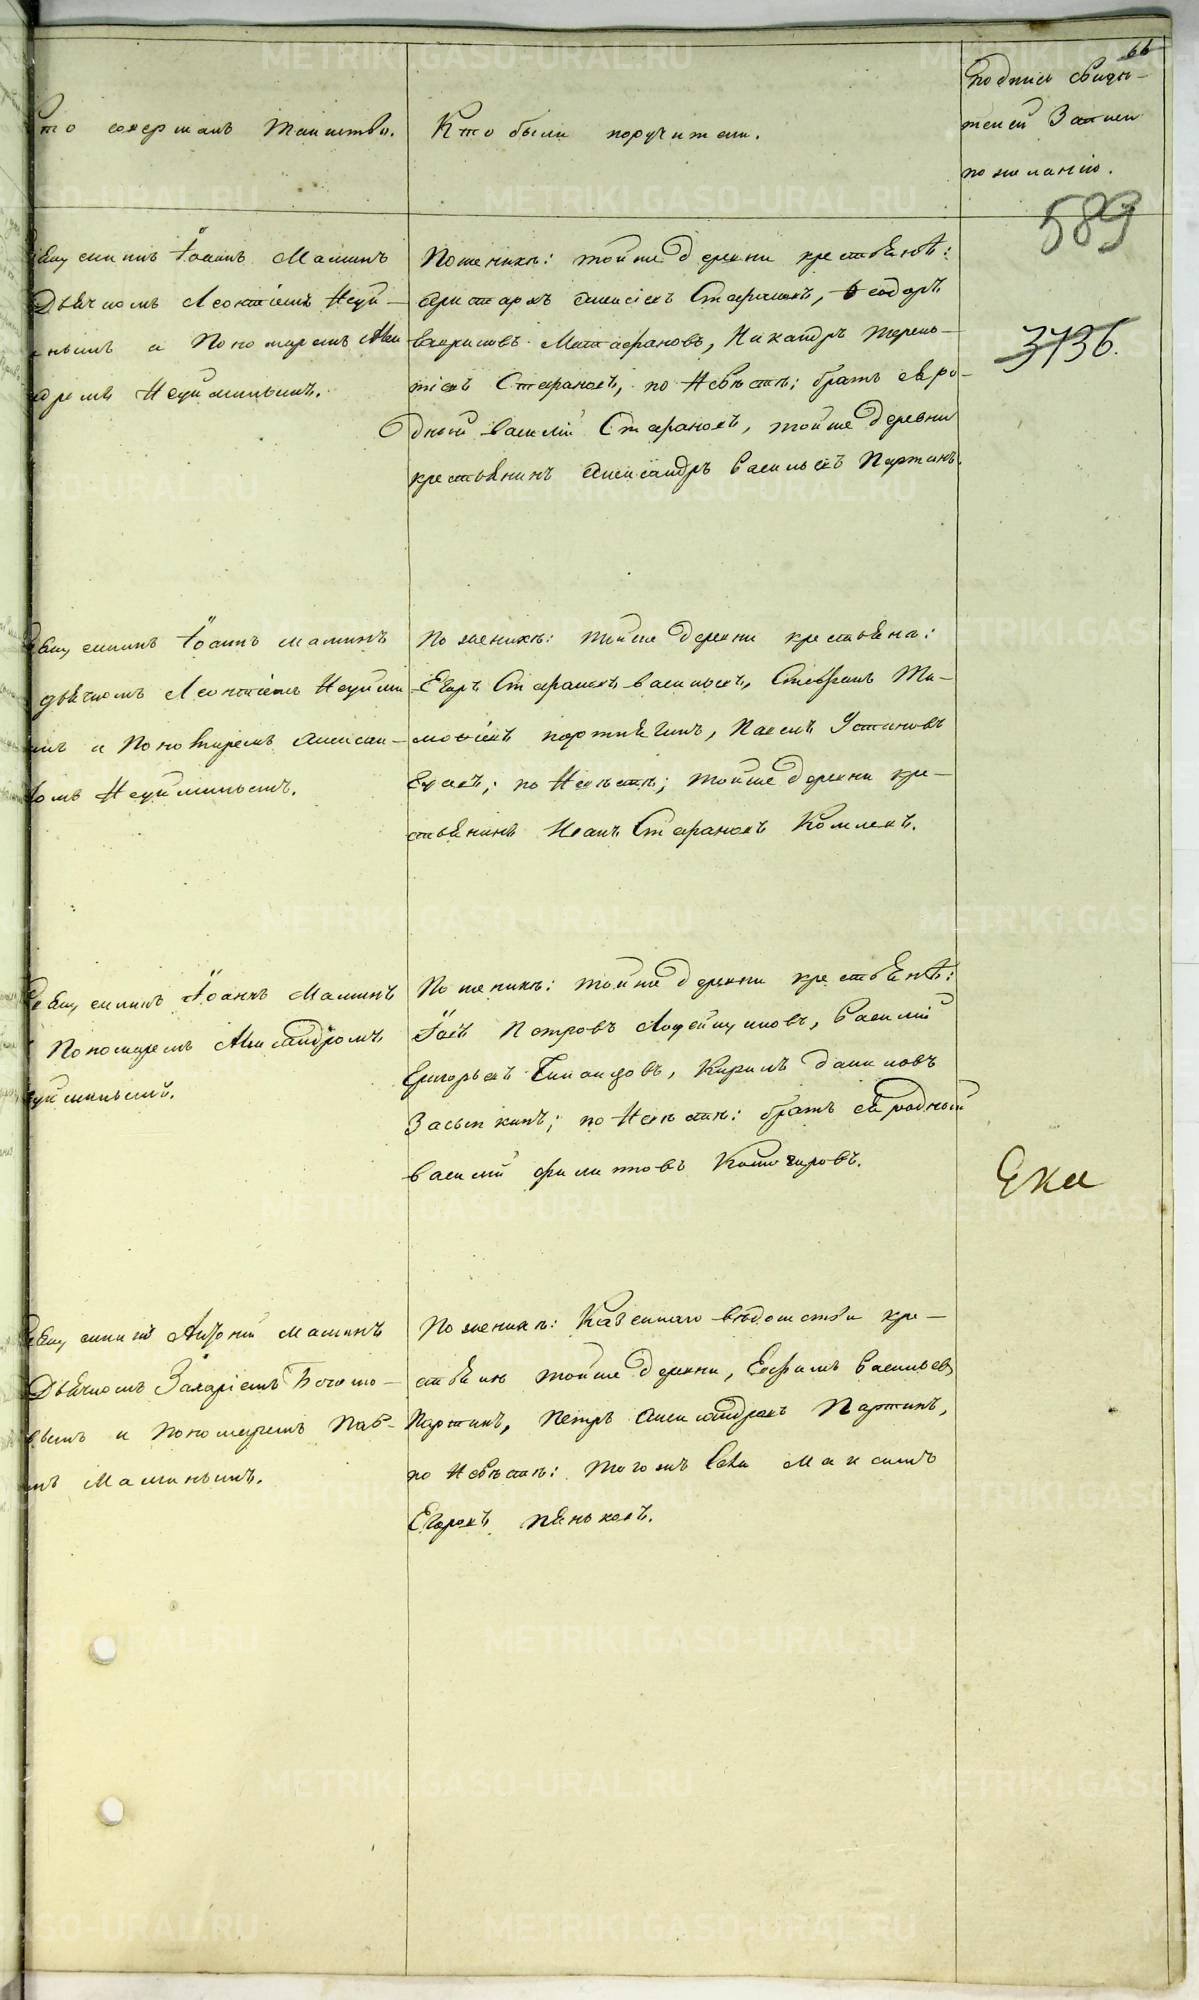 66
Кто совершалъ таинство.
Кто были поручители.
Подпись свидѣ-
телей записи
по желанію.
589
3736.
Священникъ Іоаннъ Маминъ
Дьячкомъ Леонтіемъ Неуй-
минымъ и Пономаремъ Алек
дромъ Неуйминымъ.
По женихѣ: тойже деревни крестьяне:
Аристархъ Стафановъ, Ѳеодоръ
Мат Никандръ Терень-
тіевъ Стафановъ, по Невѣстѣ: братъ ея ро-
дной Василій Стафановъ, тойже деревни
крестьянинъ Александръ Васильевъ Партинъ.
Священникъ Іоаннъ Маминъ
дьячкомъ Леонтіемъ Неуйми
мъ и Пономаремъ Алексан-
ромъ Неуйминымъ.
По женихѣ: тойже деревни крестьяне:
Егоръ Стафановъ Васильевъ, Стефанъ Ти-
моѳіевъ Павелъ Устиновъ
по Невѣстѣ; тойже деревни кре-
стьянинъ Иванъ Стафановъ Комлевъ.
Священникъ Іоаннъ Маминъ
Пономаремъ Александромъ
уйминымъ.
По женихѣ: тойже деревни крестьяне:
Петровъ Василій
Григорьевъ Кирилъ Даниловъ
Засыпкинъ; по Невѣстѣ: братъ ея родный
Василій Филиповъ
Ека
Священникъ Маминъ
Дьячкомъ Захаріемъ Богомо-
вымъ и Пономаремъ Пав-
мъ Маминымъ.
По женихѣ: Казеннаго вѣдомства кре-
стьяне тойже деревни, Ефимъ Васильевъ
Партинъ, Петръ Александровъ Партинъ,
по Невѣстѣ: тогожъ села Максимъ
Егоровъ Пяньковъ.
METRIKI.GASO-URAL.RU